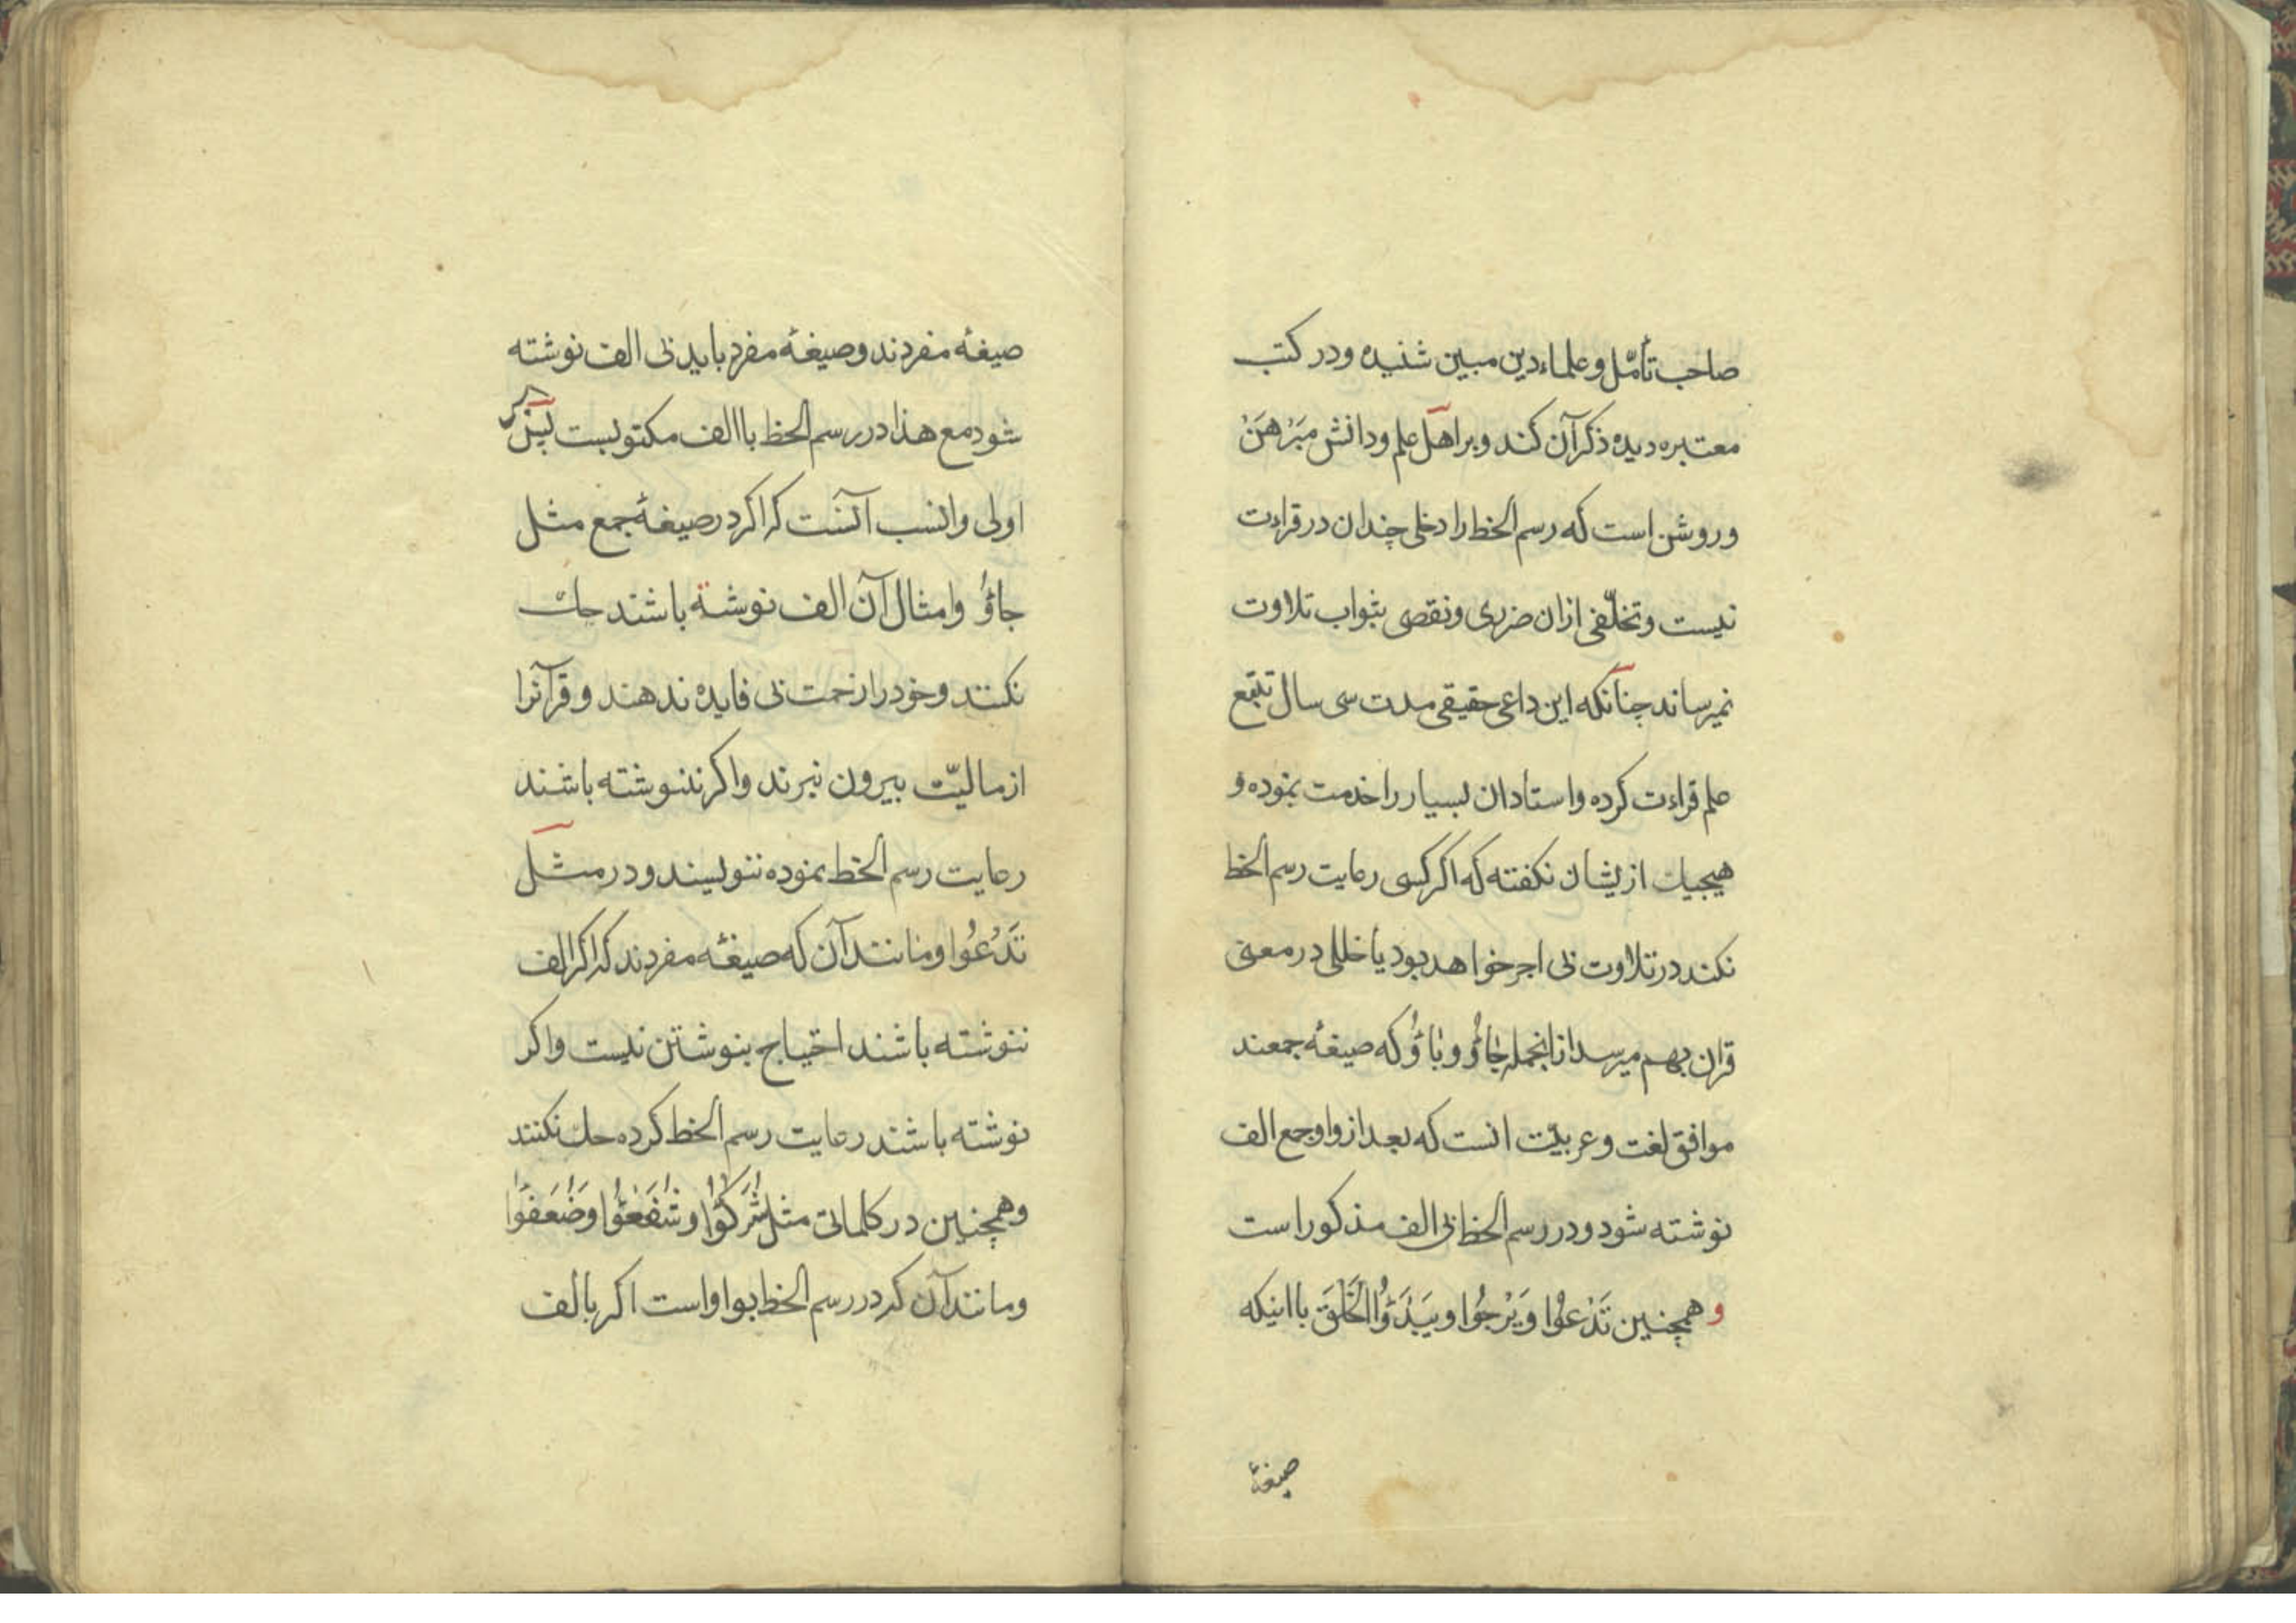 صاحب تأمّل و علماء دین مبین شنیده و در کتب
معتبره دیده ذکر آن کند و بر اهل علم و دانش مبَرْهَنْ
و روشن است که رسم الخط را دخلی چندان در قراءت
نیست و تخلّفی ازان ضرری و نقصی بثواب تلاوت
نمیرساند چنانکه این داعی حقیقی مدت سی سال تتبّع
علم قراءت کرده و استادان بسیار را خدمت نموده و
هیچیک ازیشان نکفته که اکر کسی رعایت رسم الخط
نکند در تلاوت بی اجر خواهد بود یا خللی در معنی
قران بهم میرسد ازانجمله جَاؤُ و بَاؤُ که صیغهٔ جمعند
موافق لغت و عربیّت انست که بعد از واو جمع الف
نوشته شود و در رسم الخط بی الف مذکور است
و همچنین تَدْعُوْا وَ یَرْجُوْا و یَبْدَؤُا الْخَلْقَ با اینکه
صیغهٔ
صیغهٔ مفردند و صیغهٔ مفرد باید بی الف نوشته
شود مع هذا در رسم الخط با الف مکتوبست پس
اولی و انسب آنست که اکر در صیغهٔ جمع مثل
جاؤُ و امثال آن الف نوشته باشند حک
نکنند و خود را زحمت بی فایده ندهند و قرآنرا
از مالیّت بیرون نبرند و اکر ننوشته باشند
رعایت رسم الخط نموده ننویسند و در مثل
تَدْعُوْا و مانند آن که صیغهٔ مفردند که اکر الف
ننوشته باشند احتیاج بنوشتن نیست و اکر
نوشته باشند رعایت رسم الخط کرده حک نکنند
و همچنین در کلماتی مثل شُرَکٰؤُا و شُفَعٰؤُا وَ ضُعَفٰؤُا
و مانند آن که در رسم الخط بواو است اکر بالف